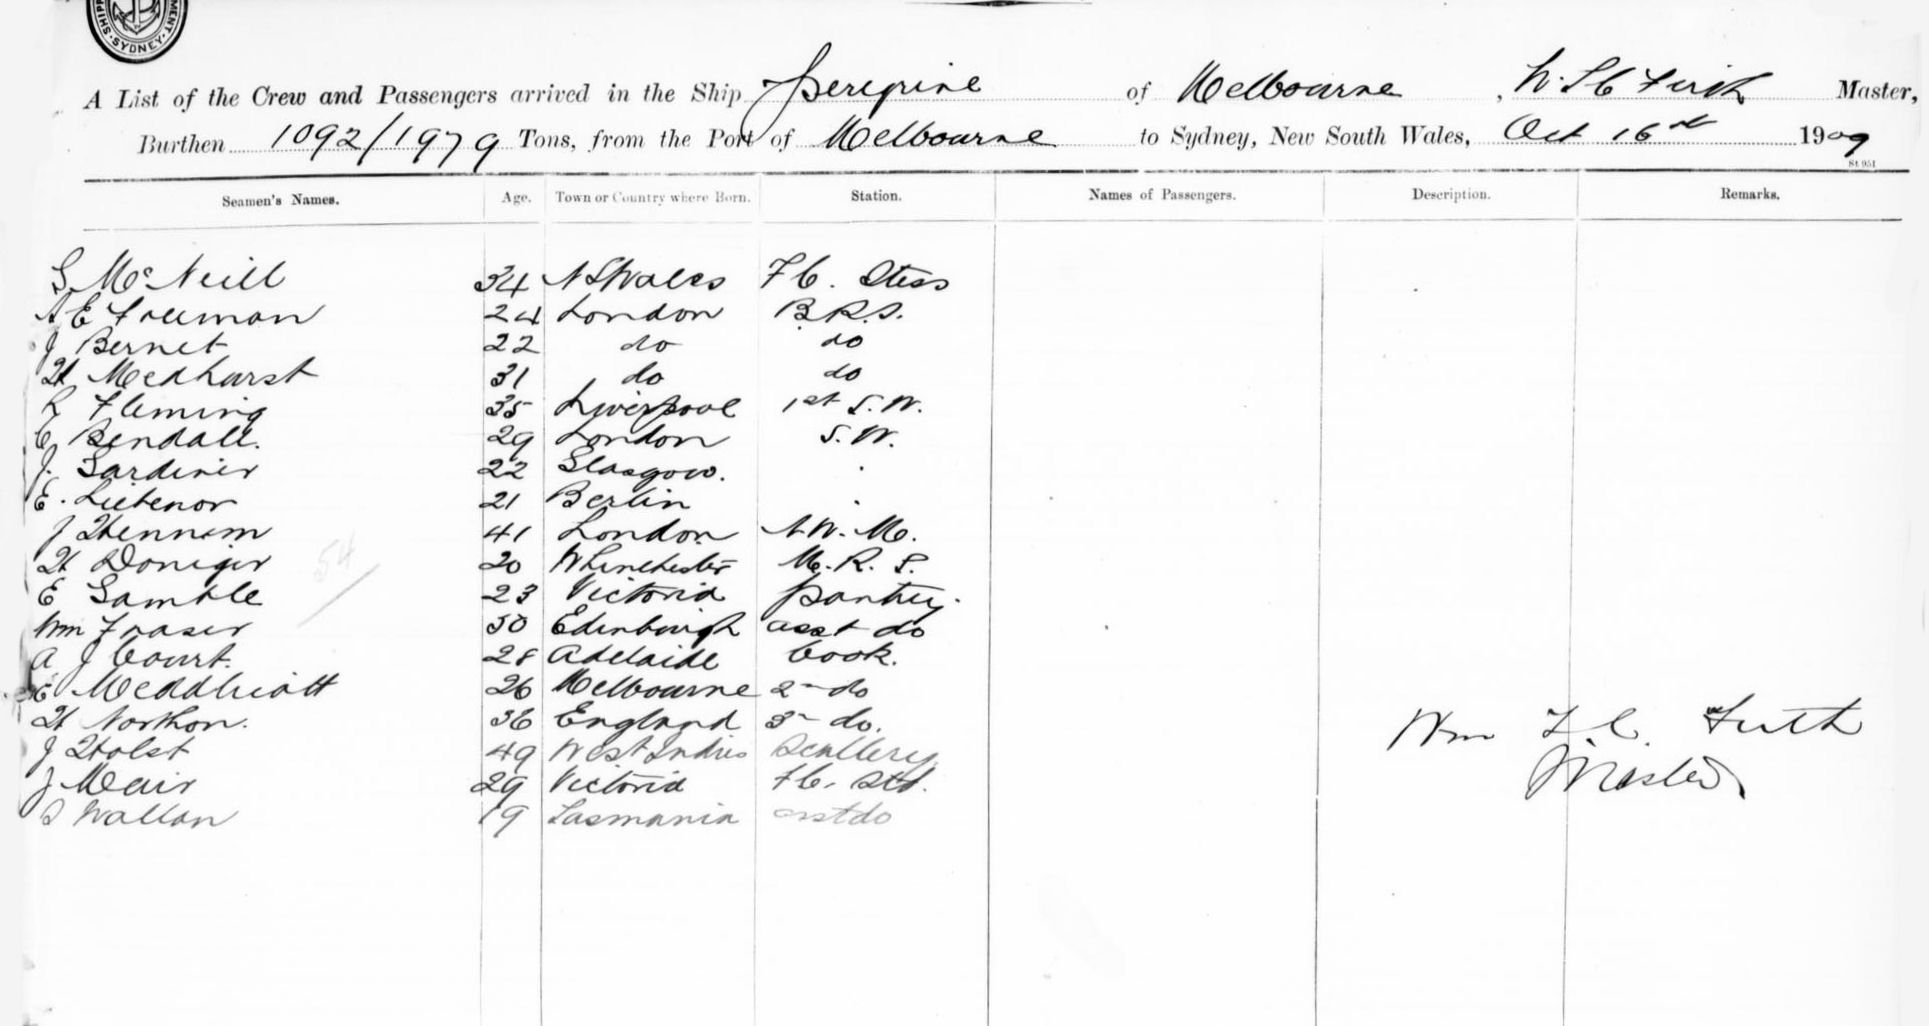 SYDNEY
A List of the Crew and Passengers arrived in the Ship Peregrine of Melbourne, Master,
Burthen 1092/1979 Tons, from the Port of Melbourne to Sydney, New South Wales, Oct 16th 1909
St 951
Seamen's Names. Age. Town or Country where Born. Station. Names of Passengers. Description. Remarks.
S McNeill 34 N S Wales F C. Stess
A E Freeman 24 London B.R.S.
J Bernet 22 do do
H Medhurst 31 do do
R Fleming 35 Liverpool 1st S.W.
C Bendall. 29 London S.W.
J. Gardiner 22 Glasgow.
E. Lietenor 21 Berlin
J Hennem 41 London N.W. Mo.
54
H Doniger 20 M. R. S.
E Gamble 23 Victoria Pantry.
Wm Fraser 50 Edinburgh asst do
A J Court. 28 Adelaide Cook.
E 26 Melbourne 2nd do
H Northon. 36 England 3rd do.
J Holst 49 West Indies Scullery
J Mair 29 Victoria F C. Std.
S Wallan 19 Tasmania asst do
Wm F. C. Firth
Master